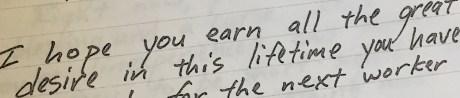 I hope you earn all the great
desire in this lifetime you have
for the next worker